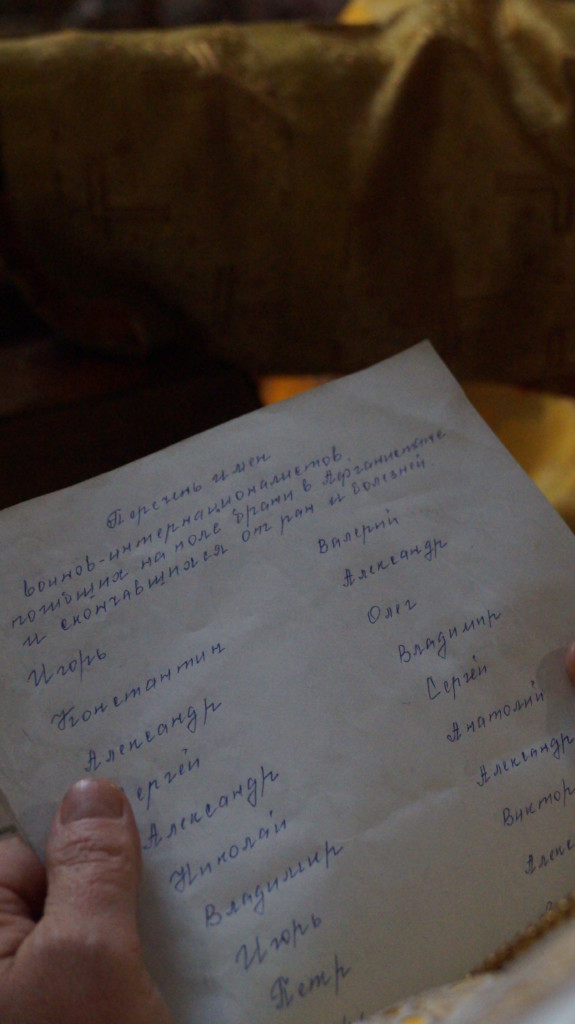 Перечень имен
воинов-интернационалистов,
погибших на поле брани в Афганистане
и скончавшихся от ран и болезней.
Игорь
Константин
Александр
Сергей
Александр
Николай
Владимир
Игорь
Петр
Валерий
Александр
Олег
Владимир
Сергей
Анатолий
Александр
Виктор
Алекс